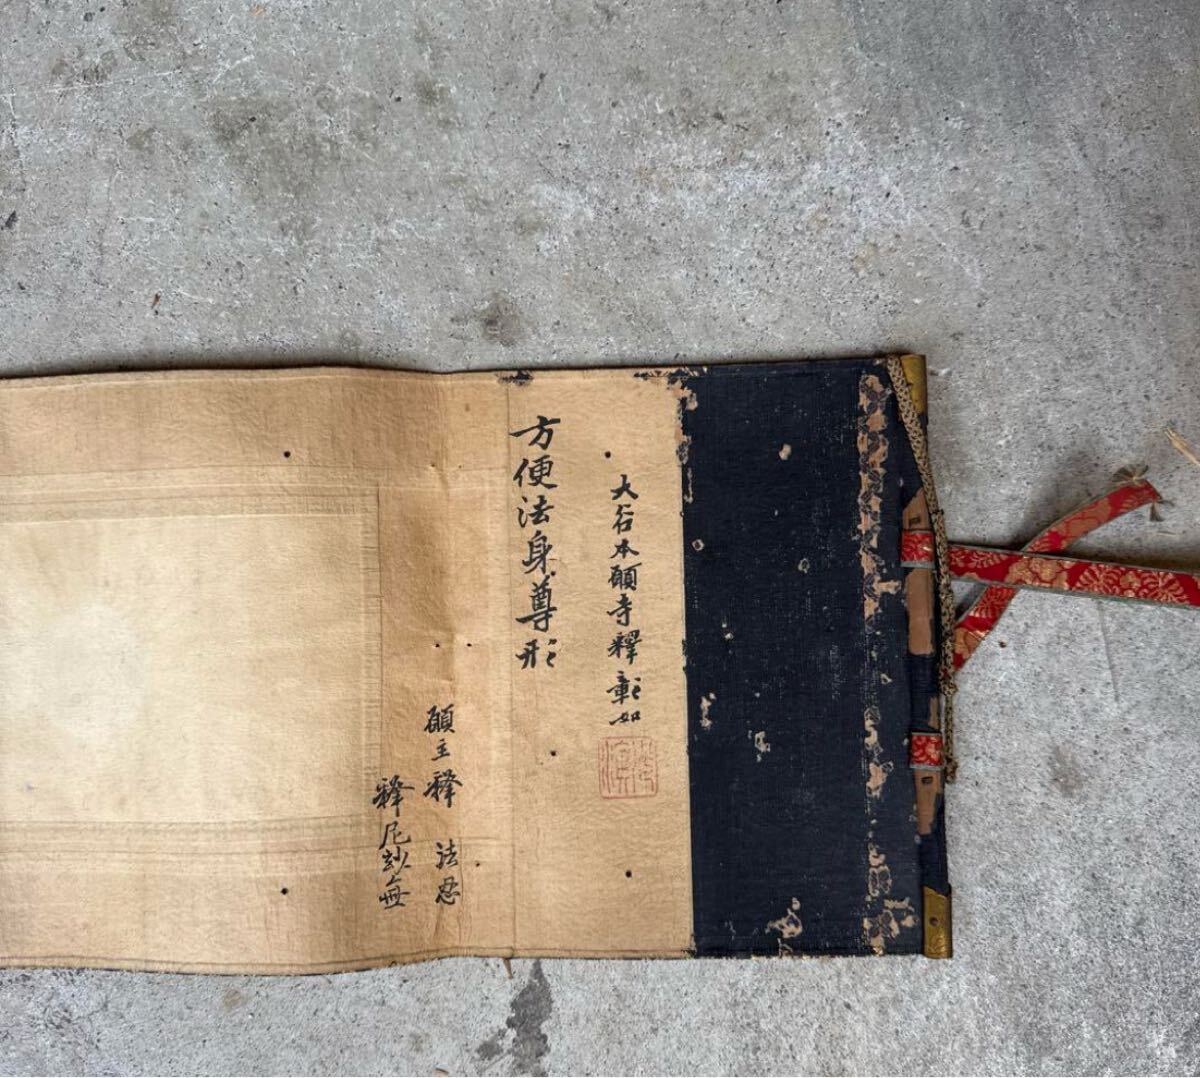 大谷本願寺釋彰如
方便法身尊形
願主釋 法忍
釋尼妙無